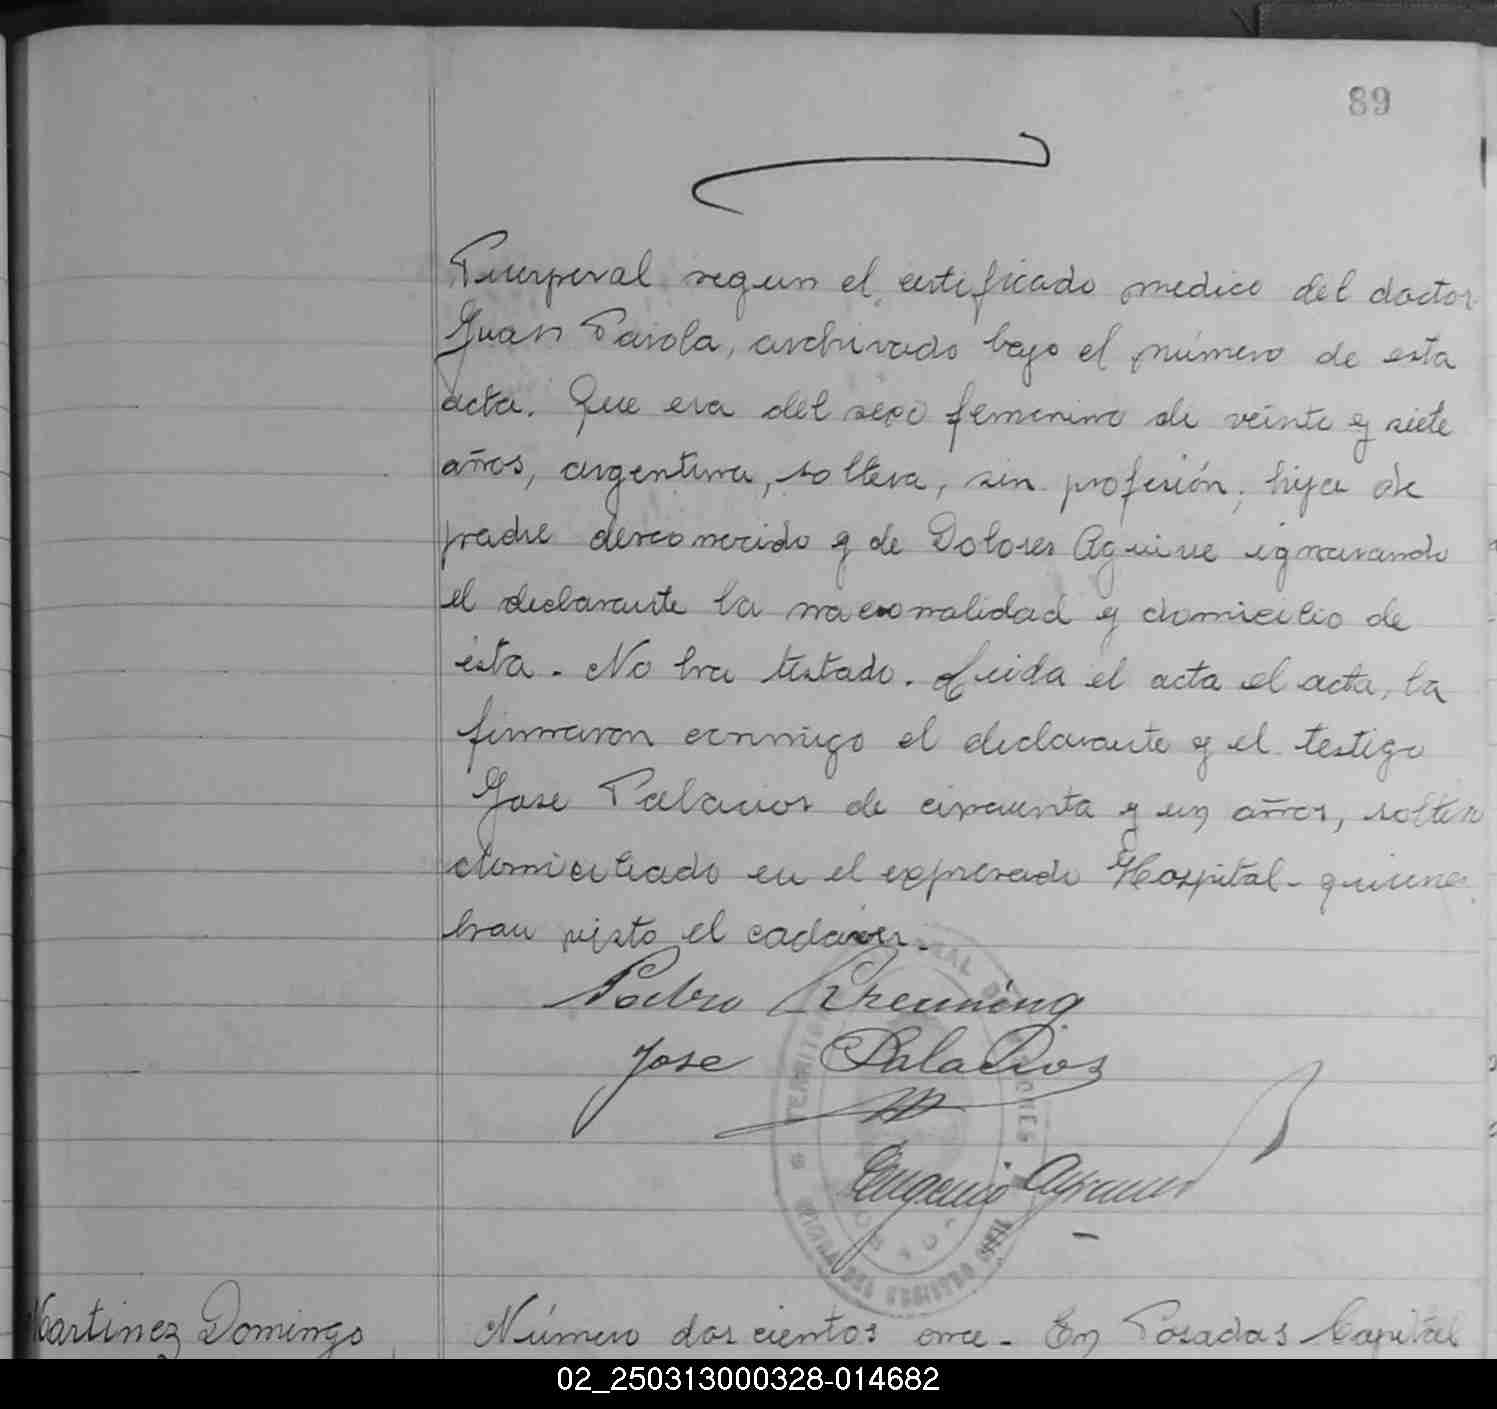 89
Puerperal segun el certificado medico del doctor
Juan Pariola, archivado bajo el número de esta
acta. Que era del sexo femenino de veinte y siete
años, argentina, soltera, sin profesión, hija de
padre desconocido y de Dolores Aguirre ignorando
el declarante la nacionalidad y domicilio de
ésta. No ha testado. Leida el acta el acta, la
firmaron conmigo el declarante y el testigo
Jose Palacios de cincuenta y un años, soltero
domiciliado en el expresado Hospital - quienes
han visto el cadaver.
Pedro
Jose Palacios
Eugenio
TERRITORIO NACIONAL DE MISIONES
OFICINA DEL REGISTRO CIVIL
Martinez Domingo
Número dos cientos once - En Posadas Capital
02_250313000328-014682